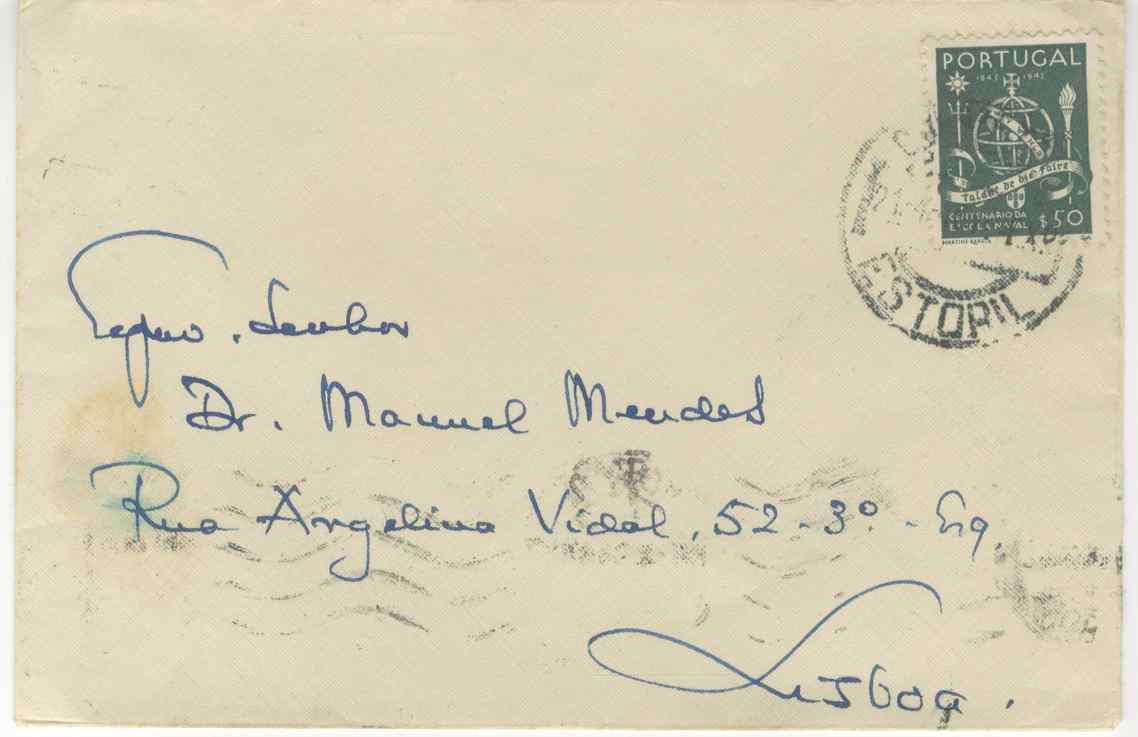 PORTUGAL
1845 1945
Talant de bie Faire
CENTENARIO DA
ESCOLA NAVAL
$50
MARTINS BARATA
ESTORIL
Exmo. Senhor
Dr. Manuel Mendes
Rua Angelina Vidal, 52-3º-Esq.
Lisboa.